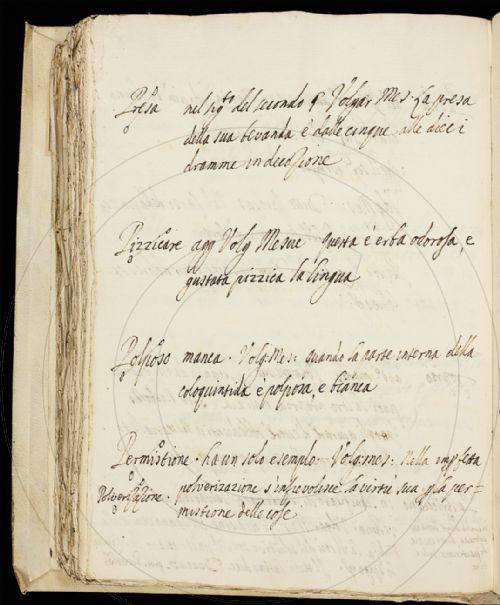 Presa nel sig.to del secondo § Volgar Mes. La presa
della sua bevanda è dalle cinque alle dieci
dramme in decozione
Pizzicare agg Volg Mesue questa è erba odorosa, e
gustata pizzica la lingua
Polposo manca. Volg. Mes: quando la parte interna della
coloquintida è polposa, e bianca
Permistione. ha un solo esempio. Volg. mes: Nella
Polverizzazione. polverizazione la virtù sua per per-
mistione delle cose